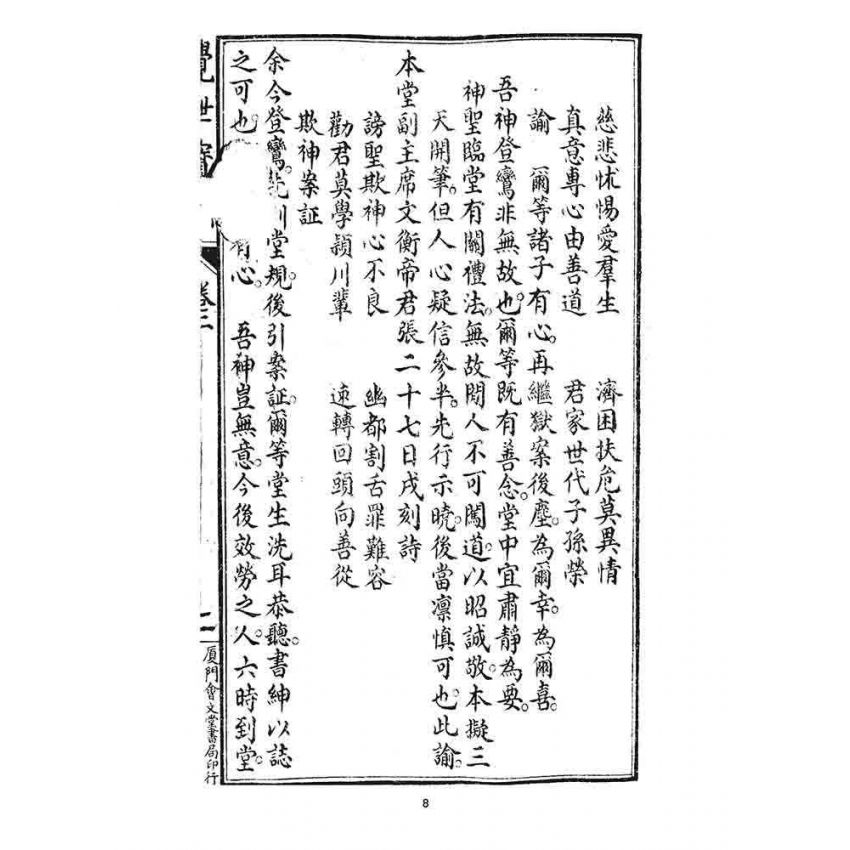 慈悲怵惕愛羣生　濟困扶危莫異情
真意專心由善道　君家世代子孫榮
諭　爾等諸子有心。再繼獄案後塵。為爾幸。為爾喜。
吾神登鸞非無故也。爾等既有善念。堂中宜肅靜為要。
神聖臨堂有關禮法。無故閒人不可闖道。以昭誠敬。本擬三
天開筆。但人心疑信參半。先行示曉。後當凛慎可也。此諭。
本堂副主席文衡帝君張二十七日戌刻詩
謗聖欺神心不良　幽都割舌罪難容
勸君莫學潁川輩　速轉回頭向善從
欺神案証
余今登鸞。先訓堂規。後引案証。爾等堂生洗耳恭聽。書紳以誌
之可也　有心。　吾神豈無意。今後效勞之人。六時到堂。
覺世 卷三
廈門會文堂書局印行
8